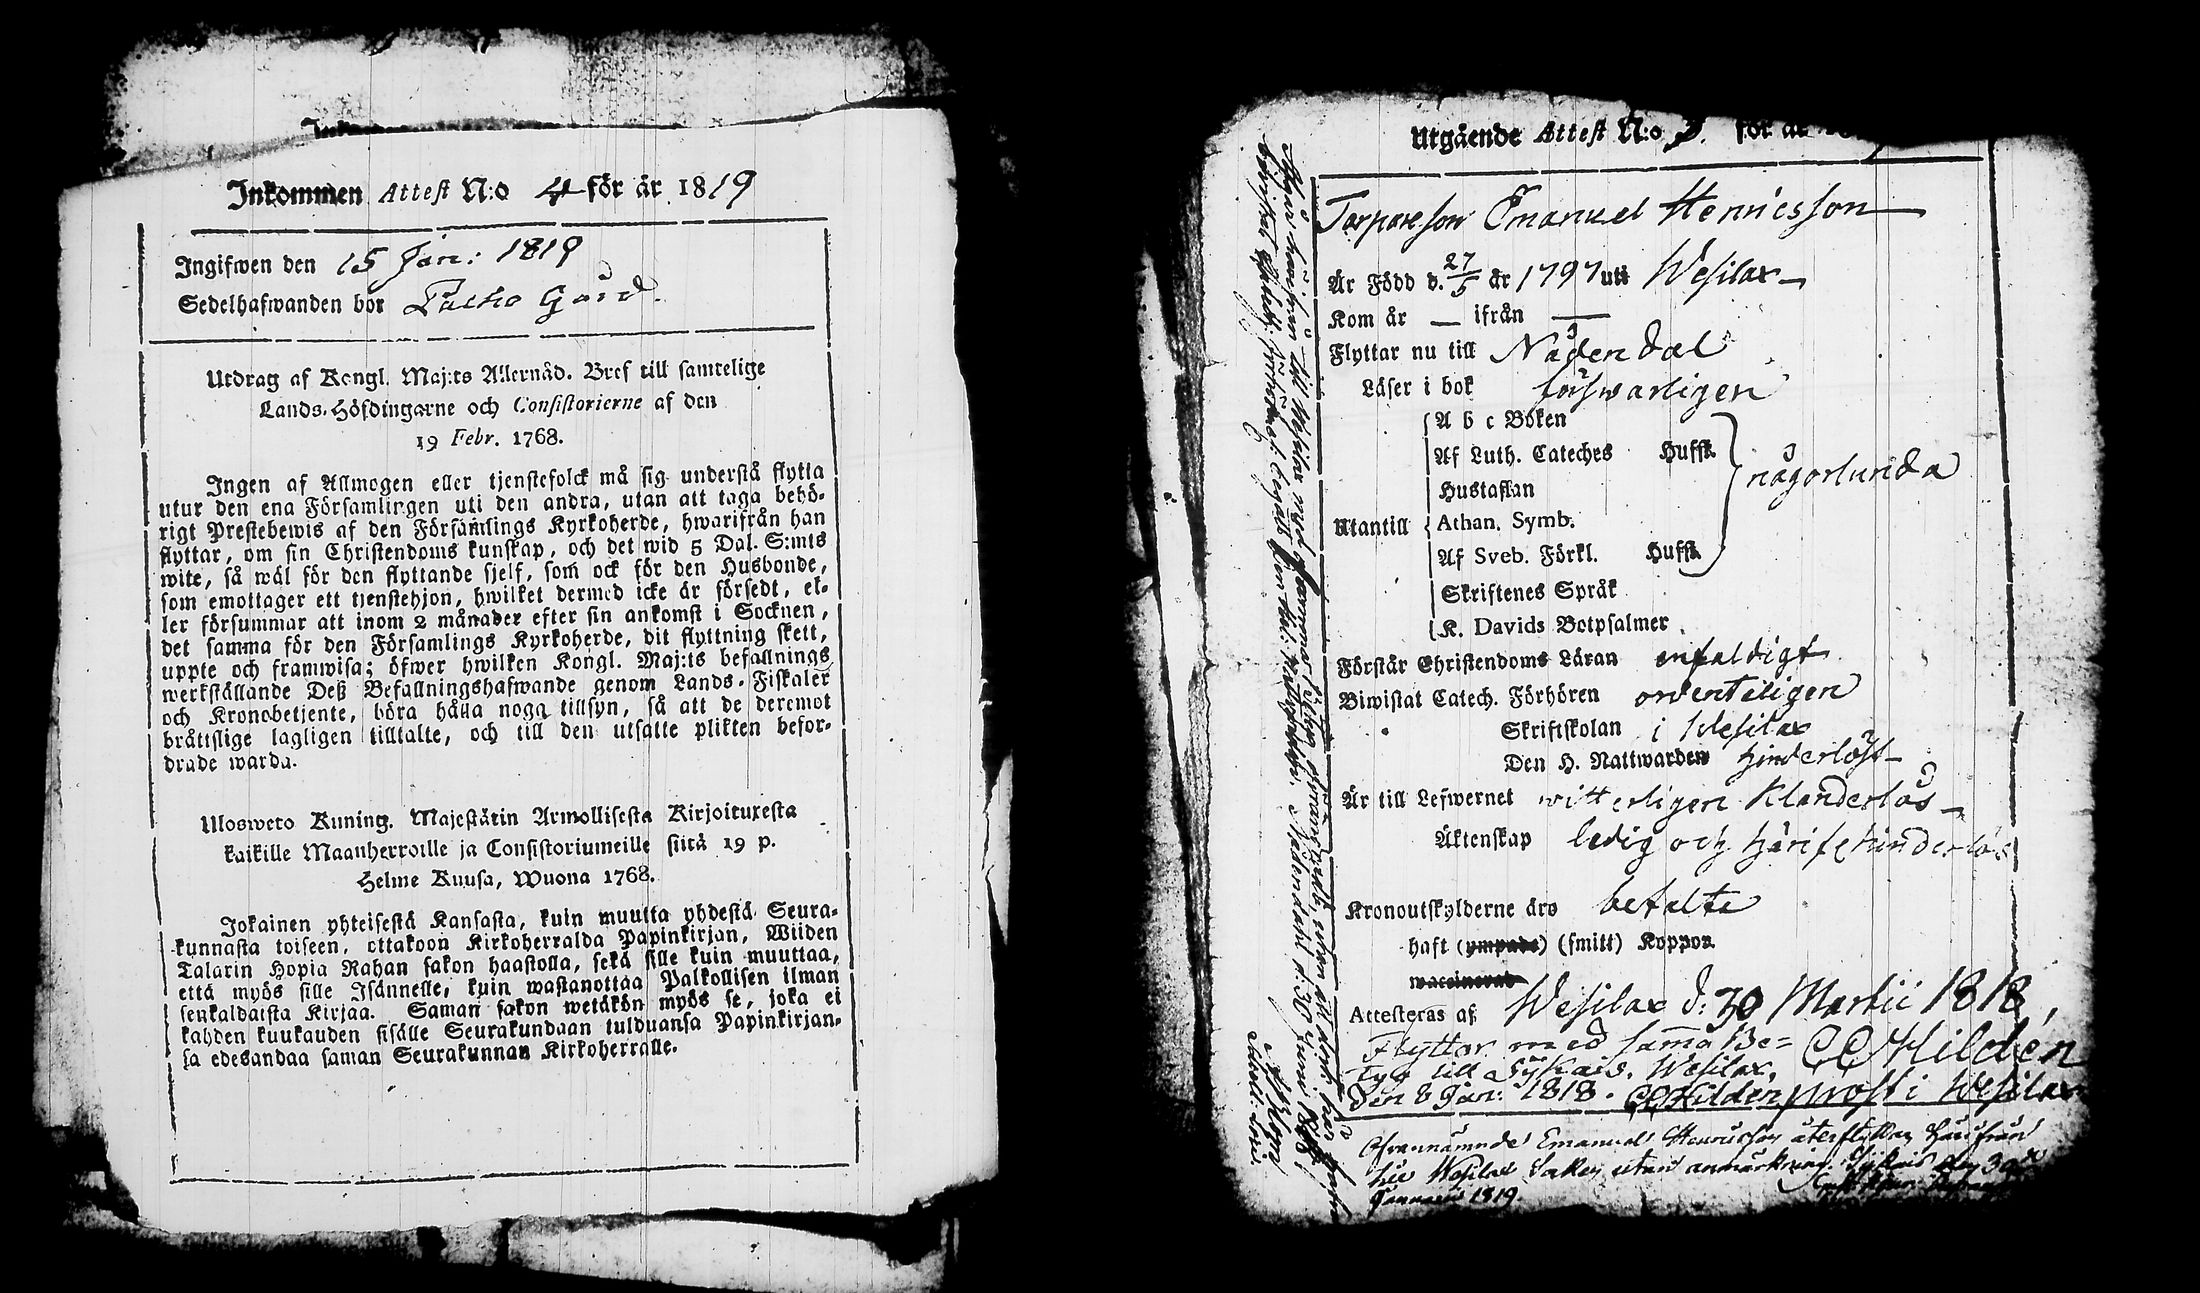 Inkommen Attest N:o 4 för år 1819
Ingifwen den 15 Jan: 1819
Sedelhafwanden bor Gård.
Utdrag af Kongl. Maj:ts Allernåd. Bref till samtelige
Lands-Höfdingarne och Consistorierne af den
19 Febr. 1768.
Ingen af Allmogen eller tjenstefolck må sig understå flytta
utur den ena Församlingen uti den andra, utan att taga behö-
rigt Prestebewis af den Församlings Kyrkoherde, hwarifrån han
flyttar, om sin Christendoms kunskap, och det wid 5 Dal. S:mts
wite, så wäl för den flyttande sjelf, som ock för den Husbonde,
som emottager ett tjenstehjon, hwilket dermed icke är försedt, el-
ler försummar att inom 2 månader efter sin ankomst i Socknen,
det samma för den Församlings Kyrkoherde, dit flyttning skett,
uppte och framwisa; öfwer hwilken Kongl. Maj:ts befallnings
werkställande Deß Befallningshafwande genom Lands-Fiskaler
och Kronobetjente, böra hålla noga tillsyn, så att de deremot
bråttslige lagligen tilltalte, och till den utsatte plikten befor-
drade warda.
Ulosweto Kuning. Majestätin Armollisesta Kirjoituxesta
kaikille Maanherroille ja Consistoriumeille siitä 19 p.
Helme Kuusa, Wuona 1768.
Jokainen yhteisestä Kansasta, kuin muutta yhdestä Seura-
kunnasta toiseen, ottakoon Kirkoherralda Papinkirjan, Wiiden
Talarin Hopia Rahan sakon haastolla, sekä sille kuin muuttaa,
että myös sille Isännelle, kuin wastanottaa Palkollisen ilman
senkaldaista Kirjaa. Saman sakon wetäkön myös se, joka ei
kahden kuukauden sisälle Seurakundaan tulduansa Papinkirjan-
sa edesandaa saman Seurakunnan Kirkoherralle.
Utgående Attest N:o 3. för år
Torpareson Emanuel Henricsson
Är Född d. 27/5 år 1797 uti Wesilax
Kom år — ifrån —
Flyttar nu till Nådendal
Läser i bok förswarligen
A b c Boken
Af Luth. Cateches Hufst.
Hustaflan
någorlunda
Utantill Athan. Symb.
Af Sveb. Förkl. Hufst.
Skriftenes Språk
K. Davids Botpsalmer
Förstår Christendoms Läran enfaldigt
Biwistat Catech. Förhören ordenteligen
Skriftskolan i Wesilax
Den H. Nattwarden hinderlöst
Är till Lefwernet witterligen klanderlös
Äktenskap ledig och härifr hinderlös
Kronoutskylderne äro betalte
haft (ympade) (smitt) Koppor
waccinerad
Attesteras af Wesilax d: 30 Martii 1818,
CCHildén
Flyttar med samma Be-
tyg till Sykais, Wesilax,
den 8 Jan: 1818. CCHildén prost i Wesilax
Ofvannämnde Emanuel Henricsson återflyttar härifrån
till Wesilax Socken utan anmärkning. den 3
Januarii 1819